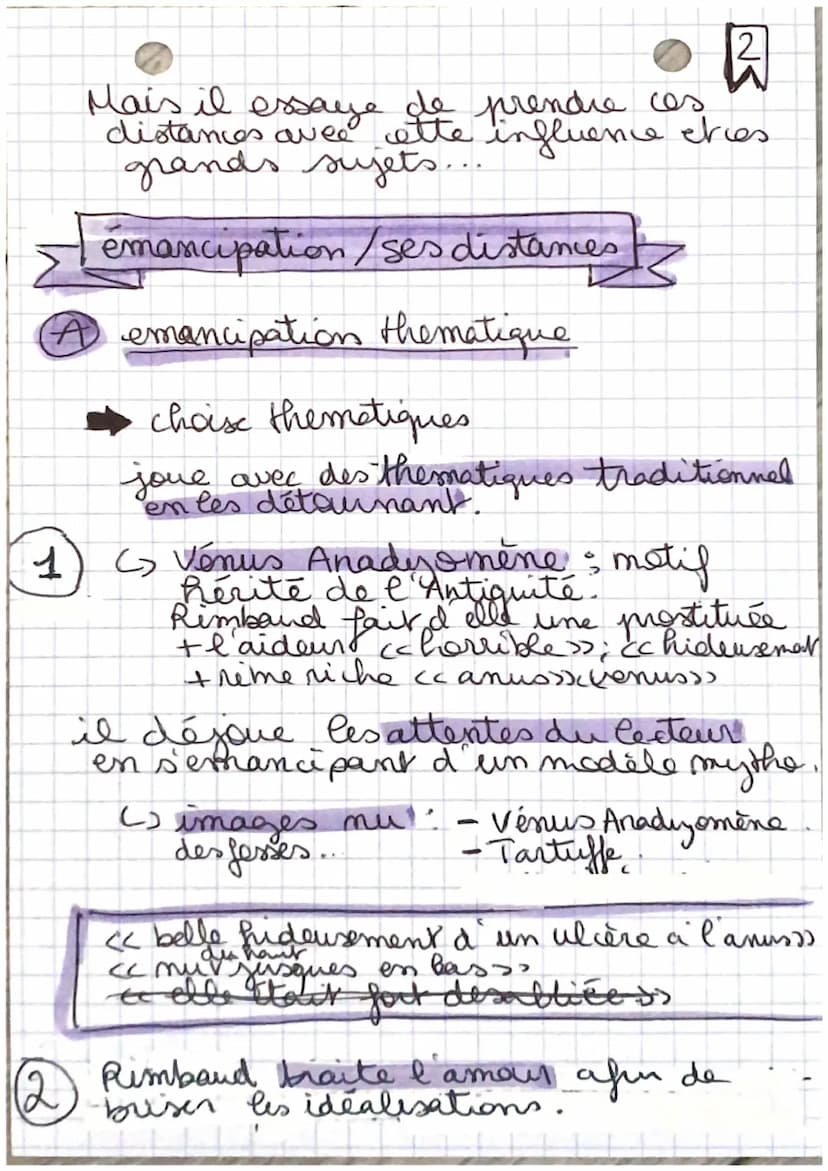 2
Mais il essaye de prendre ces
distances avec cette influence et ces
grands sujets...
émancipation / ses distances
A emancipation thematique
➡ choix thematiques
joue avec des thematiques traditionnel
en les détournant.
1 ↪ Vénus Anadyomène : motif
hérité de l'Antiquité.
Rimbaud fait d'elle une prostituée
+ l'aideur << horrible >> ; << hideusement
+ rime riche << anus >> << venus >>
il déjoue les attentes du lecteur
en s'emancipant d'un modèle mythe.
↪ images nu : - Vénus Anadyomène.
des fesses... - Tartuffe.
<< belle hideusement d'un ulcère à l'anus >>
<< nu du haut jusques en bas >>
<< elle était fort desabliée >>
2 Rimbaud traite l'amour afin de
briser les idéalisations.